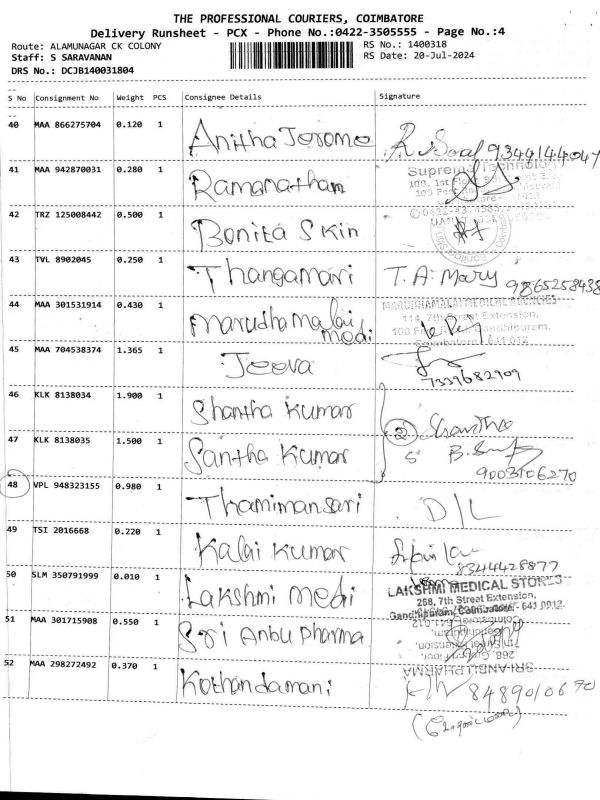 THE PROFESSIONAL COURIERS, COIMBATORE
Delivery Runsheet - PCX - Phone No.:0422-3505555 - Page No.:4
Route: ALAMUNAGAR CK COLONY RS No.: 1400318
Staff: S SARAVANAN RS Date: 20-Jul-2024
DRS No.: DCJB140031804
S No Consignment No Weight PCS Consignee Details Signature
40 MAA 866275704 0.120 1 Anitha Jerome 9344144047
41 MAA 942870031 0.280 1 Ramanatham
Supreme Technology
42 TRZ 125008442 0.500 1 Bonita Skin
43 TVL 8902045 0.250 1 Thangamari T. A. Mary 9865258438
44 MAA 301531914 0.430 1 Marudhamalai medi
MARUDHAMALAI MEDICAL AGENCIES
114, 7th Street Extension,
Gandhipuram,
Coimbatore - 641 012
45 MAA 704538374 1.365 1 Jeeva 7339682909
46 KLK 8138034 1.900 1 Shantha Kumar
47 KLK 8138035 1.500 1 Santha Kumar 2 9003106270
48 VPL 948323155 0.980 1 Thamimansari D/L
49 TSI 2016668 0.220 1 Kalai Kumar 8344428877
50 SLM 350791999 0.010 1 Lakshmi medi
LAKSHMI MEDICAL STORES
268, 7th Street Extension,
Gandhipuram, Coimbatore - 641 0012.
51 MAA 301715908 0.550 1 Sri Anbu Pharma
SRI ANBU PHARMA
52 MAA 298272492 0.370 1 Kothandamani 8489010670